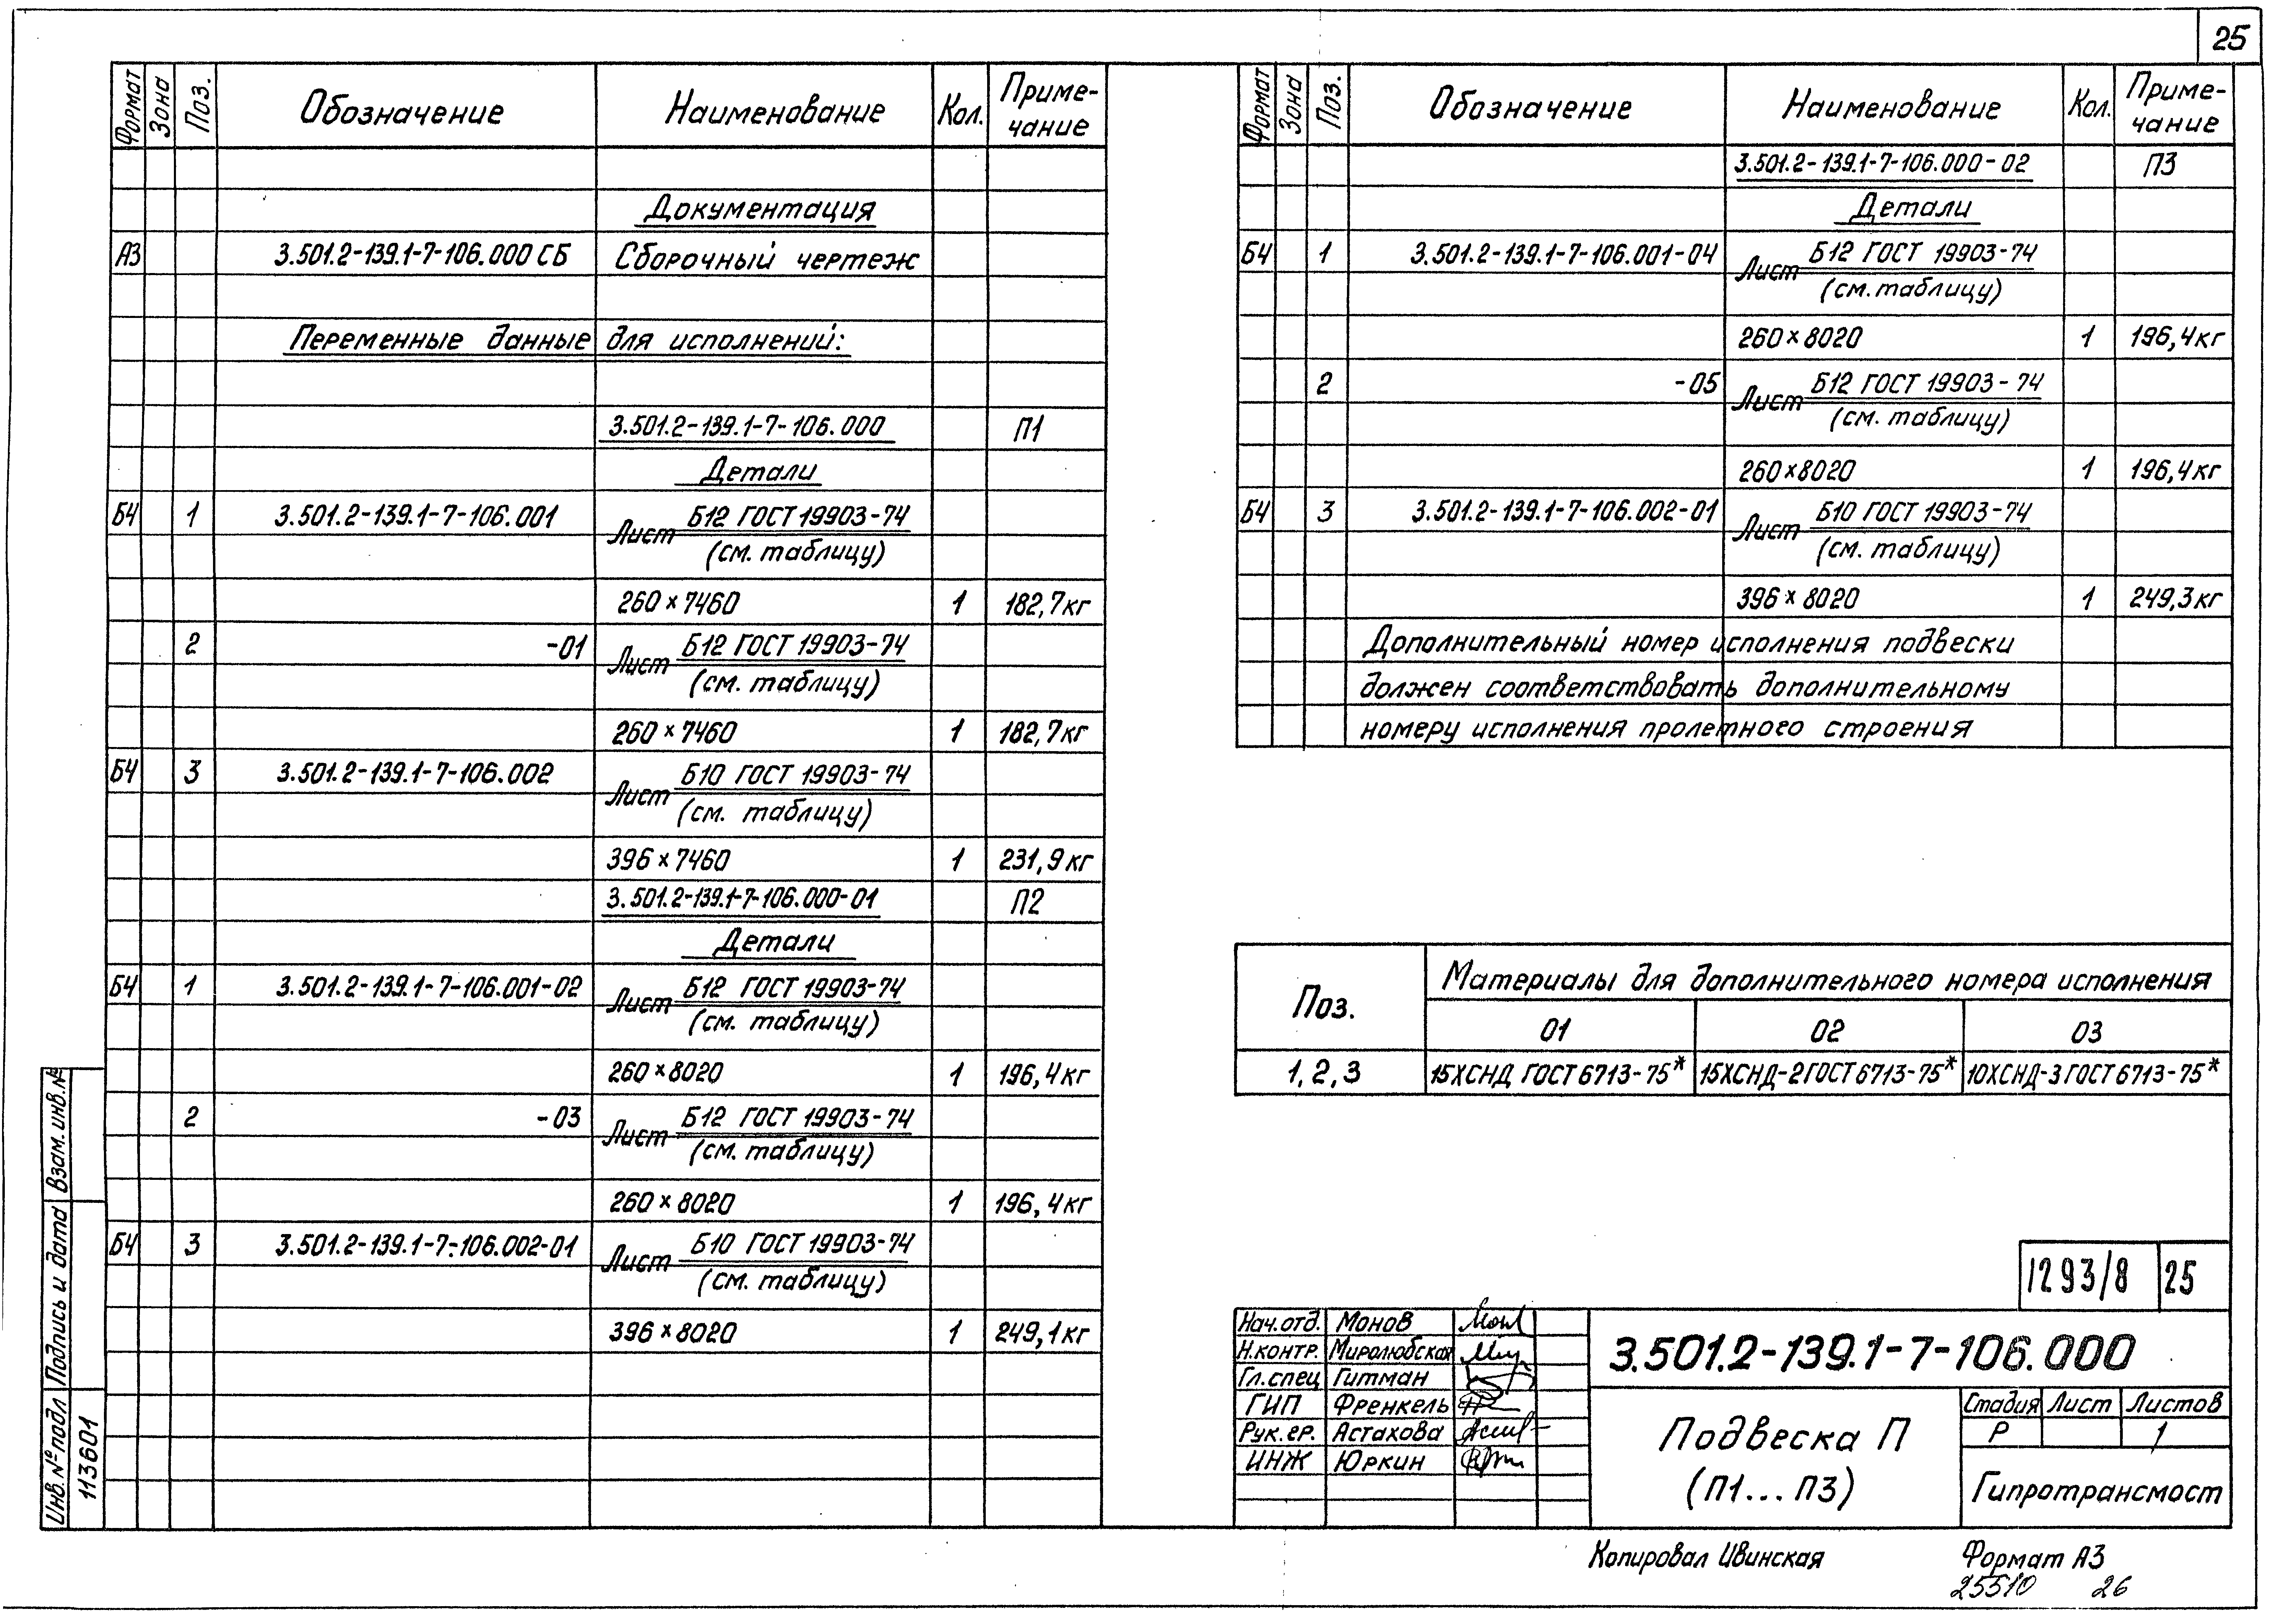 25
Формат Зона Поз. Обозначение Наименование Кол. Приме-
чание
Документация
А3 3.501.2-139.1-7-106.000 СБ Сборочный чертеж
Переменные данные для исполнений:
3.501.2-139.1-7-106.000 П1
Детали
Б4 1 3.501.2-139.1-7-106.001 Лист Б12 ГОСТ 19903-74
(см. таблицу)
260×7460 1 182,7кг
2 -01 Лист Б12 ГОСТ 19903-74
(см. таблицу)
260×7460 1 182,7кг
Б4 3 3.501.2-139.1-7-106.002 Лист Б10 ГОСТ 19903-74
(см. таблицу)
396×7460 1 231,9кг
3.501.2-139.1-7-106.000-01 П2
Детали
Б4 1 3.501.2-139.1-7-106.001-02 Лист Б12 ГОСТ 19903-74
(см. таблицу)
260×8020 1 196,4кг
2 -03 Лист Б12 ГОСТ 19903-74
(см. таблицу)
260×8020 1 196,4кг
Б4 3 3.501.2-139.1-7-106.002-01 Лист Б10 ГОСТ 19903-74
(см. таблицу)
396×8020 1 249,1кг
Формат Зона Поз. Обозначение Наименование Кол. Приме-
чание
3.501.2-139.1-7-106.000-02 П3
Детали
Б4 1 3.501.2-139.1-7-106.001-04 Лист Б12 ГОСТ 19903-74
(см. таблицу)
260×8020 1 196,4кг
2 -05 Лист Б12 ГОСТ 19903-74
(см. таблицу)
260×8020 1 196,4кг
Б4 3 3.501.2-139.1-7-106.002-01 Лист Б10 ГОСТ 19903-74
(см. таблицу)
396×8020 1 249,3кг
Дополнительный номер исполнения подвески
должен соответствовать дополнительному
номеру исполнения пролетного строения
Поз. Материалы для дополнительного номера исполнения
01 02 03
1,2,3 15ХСНД ГОСТ 6713-75* 15ХСНД-2 ГОСТ 6713-75* 10ХСНД-3 ГОСТ 6713-75*
1293/8 25
Нач.отд. Монов
Н.контр. Миролюбская
Гл.спец Гитман
ГИП Френкель
Рук.гр. Астахова
ИНЖ Юркин
3.501.2-139.1-7-106.000
Подвеска П
(П1...П3)
Стадия Лист Листов
Р 1
Гипротрансмост
Инв.№ подл Подпись и дата Взам.инв.№
113601
Копировал Ивинская Формат А3
25510 26